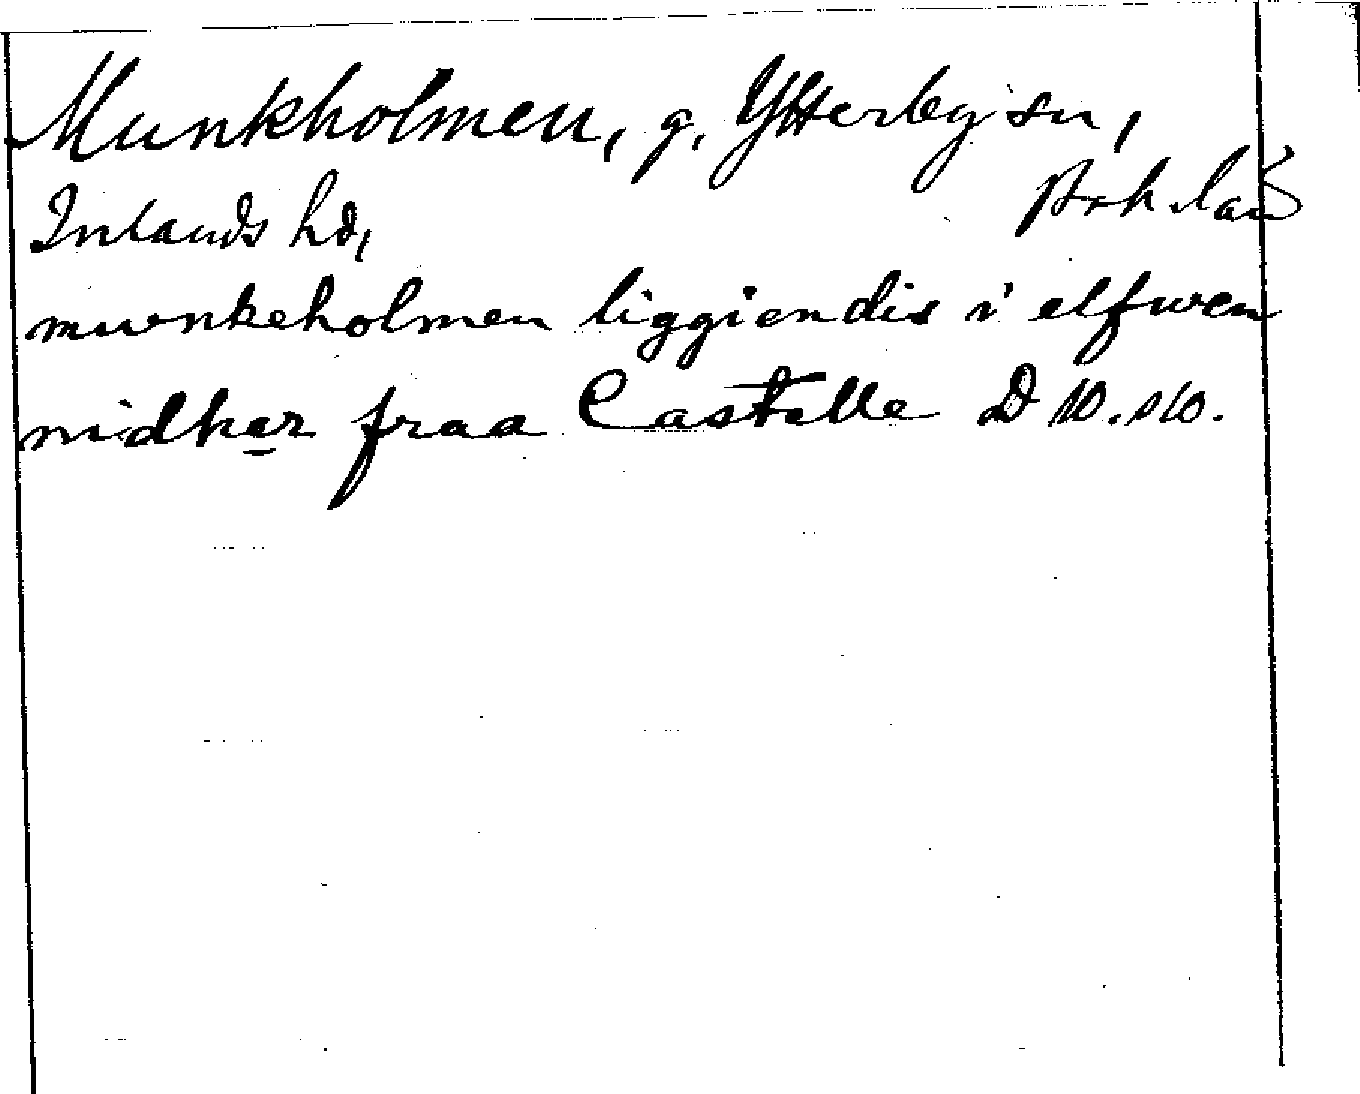 Munkholmen, g, Ytterby sn,
Inlands hd, Boh.län
mwnkeholmen liggiendis i elfwen
nidher fraa Castelle D 10. s10.